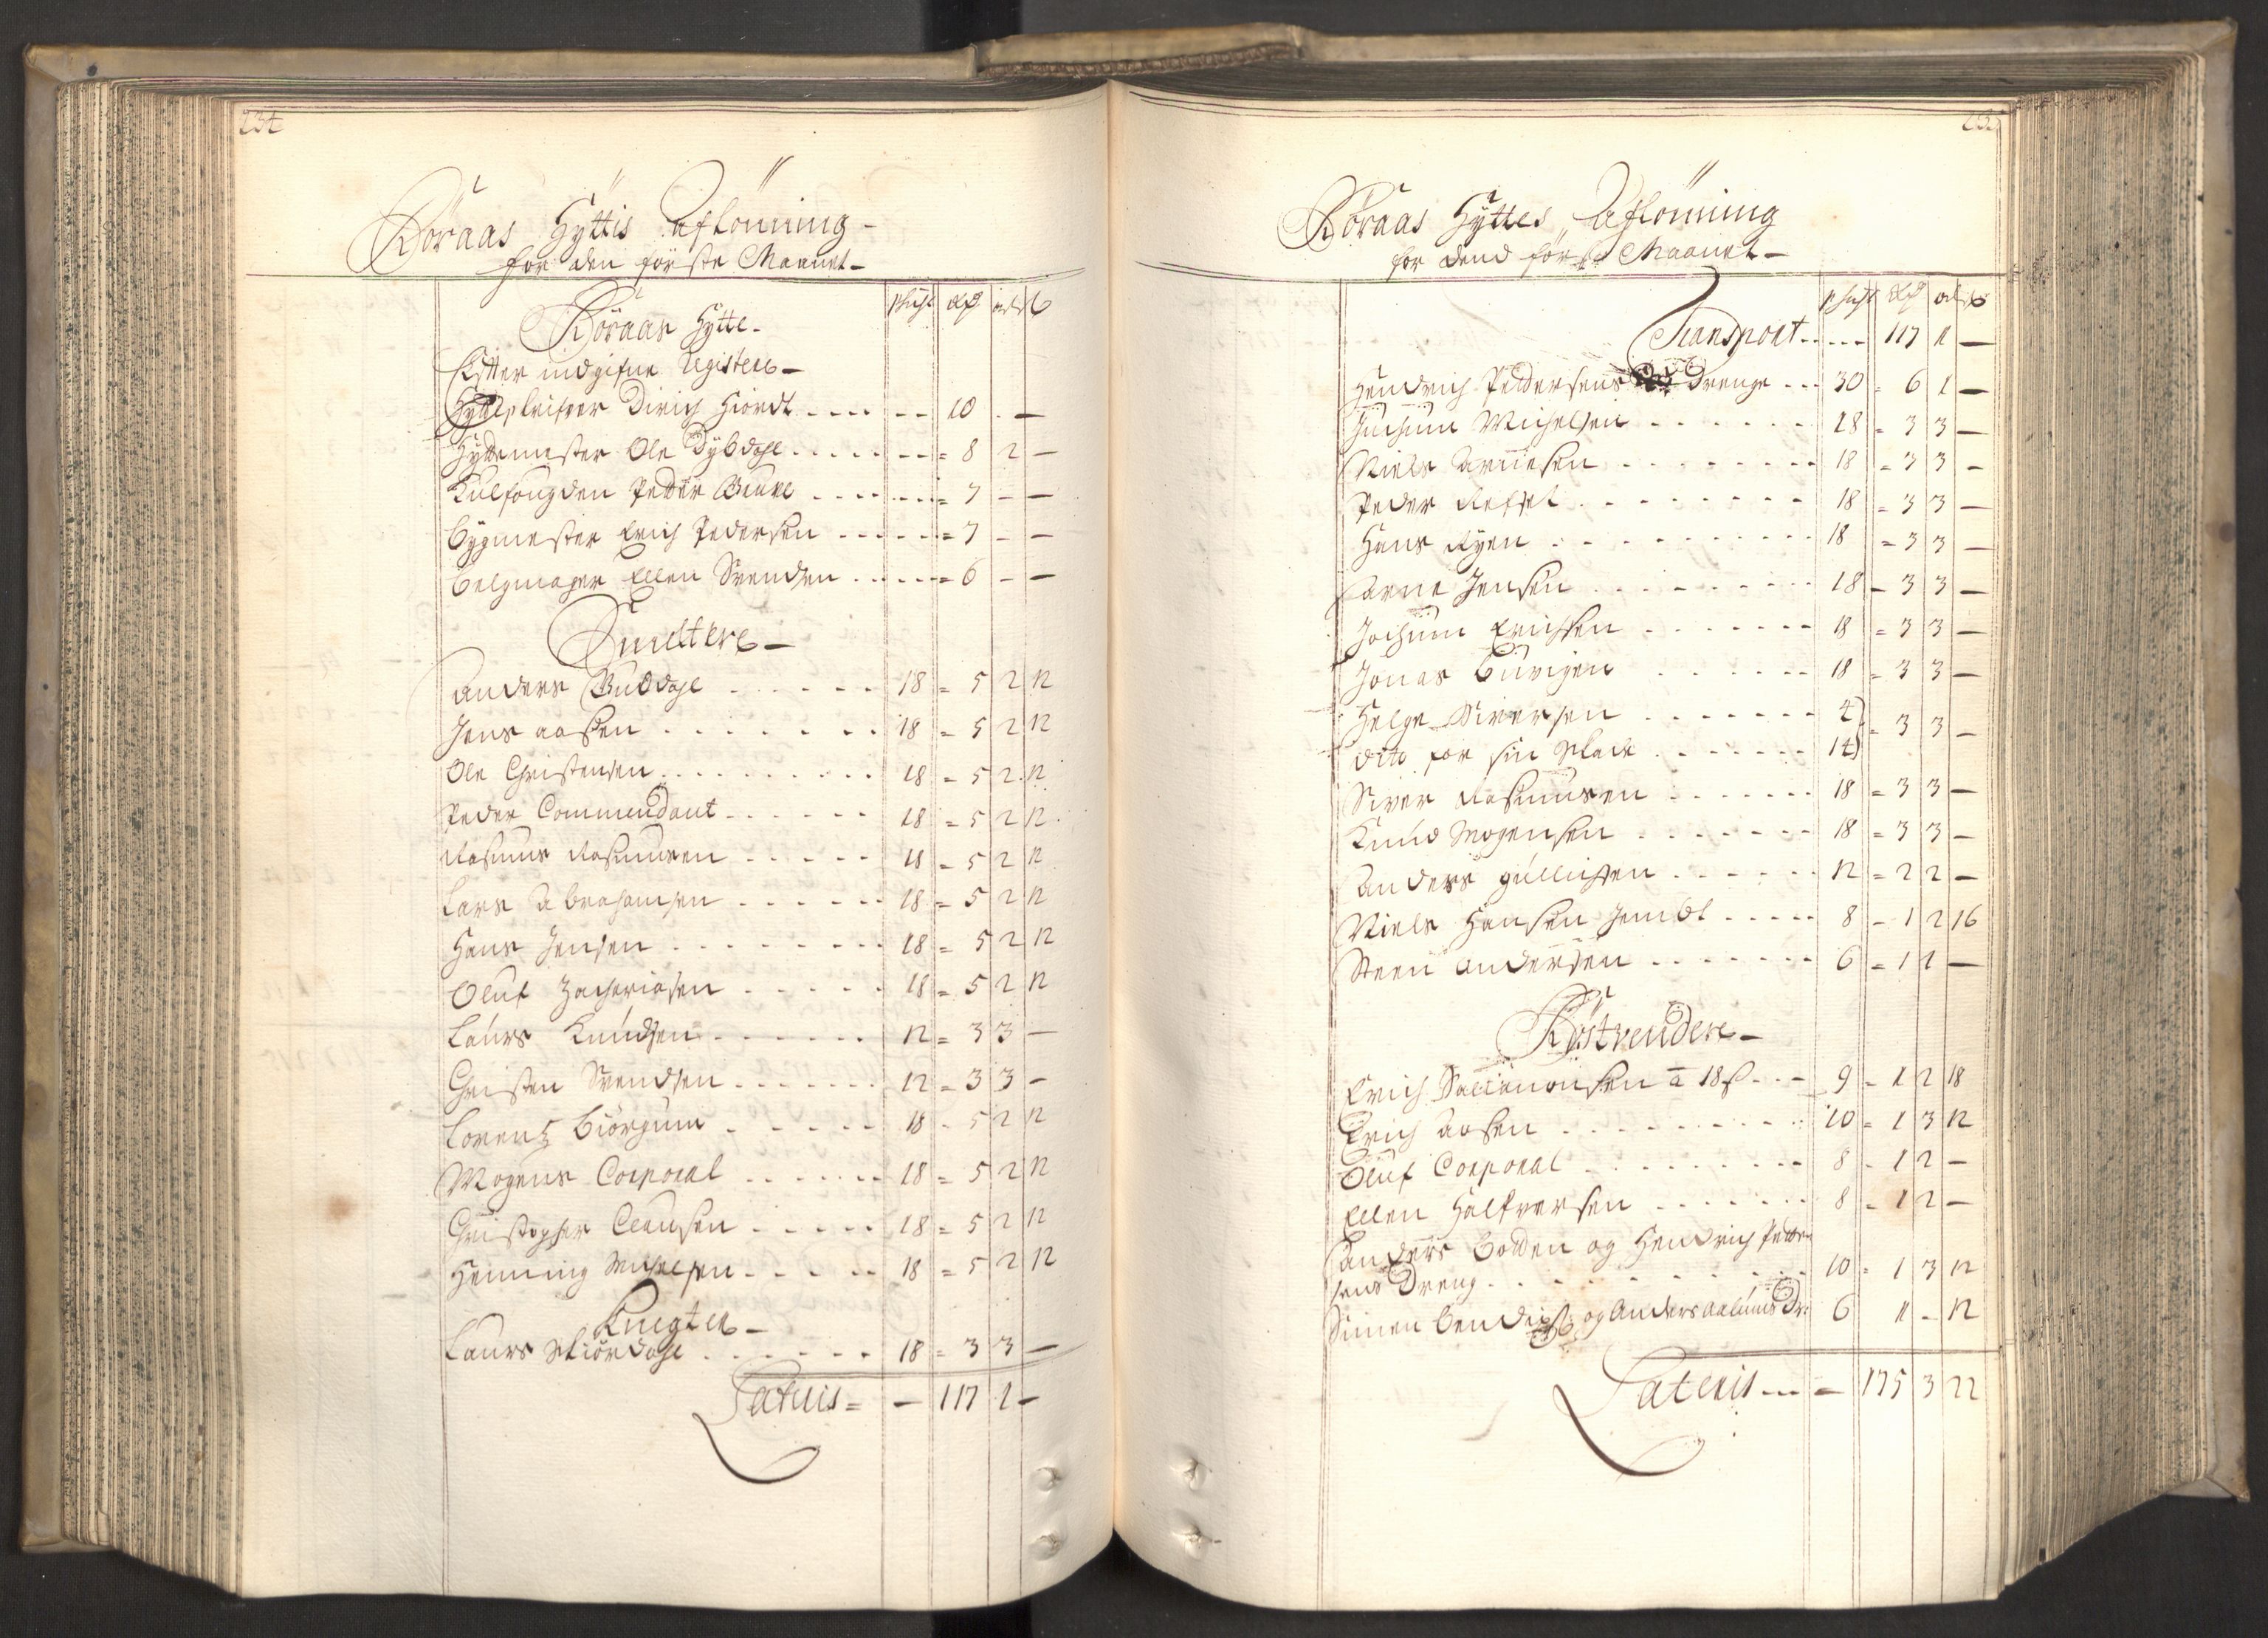 234
Röraas Hyttis Aflönning -
for den förste Maanet -
Schigt rdr ort ß
Röraas Hytte -
Efter indgifne Registere -
Hytteskrifver Dirich Hiordt - - - - - - 10 - -
Hyttemester Ole Dybdahl - - - - - = 8 2 -
Kulfougden Peder - - - = 7 - -
Bygmester Erich Pedersen - - - - = 7 - -
Belgmager Ellen Svendsen - - - - = 6 - -
Smeltere -
Anders Buddahl - - - - - 18 = 5 2 12
Jens Aasen - - - - - 18 = 5 2 12
Ole Christensen - - - - - 18 = 5 2 12
Peder Commendant - - - - - 18 = 5 2 12
Rasmus Rasmusen - - - - - 18 = 5 2 12
Lars Abrahamsen - - - - - 18 = 5 2 12
Hans Jensen - - - - - 18 = 5 2 12
Oluf Zachariasen - - - - - 18 = 5 2 12
Laurs Knudsen - - - - - 12 = 3 3 -
Christen Svendsen - - - - - 12 = 3 3 -
Lorentz Biörgum - - - - - 18 - 5 2 12
Mogens Corporal - - - - - 18 = 5 2 12
Christopher Clausen - - - - - 18 = 5 2 12
Henning Michelsen - - - - - 18 = 5 2 12
Knegter -
Laurs Skiördahl - - - - - 18 = 3 3 -
Lateris = - 117 1 -
Röraas Hyttes Aflönning
for dend förste Maanet -
Schigt rdr ort ß
Transport - - - - - 117 1 -
Hendrich Peddersens Drenge - - - 30 = 6 1 -
Jochum Michelsen - - - - - 18 = 3 3 -
Niels Arnesen - - - - - 18 = 3 3 -
Peder - - - - - 18 = 3 3 -
Hans Ryen - - - - - 18 = 3 3 -
Arne Jensen - - - - - 18 = 3 3 -
Jochum Erichsen - - - - - 18 = 3 3 -
Jonas Burigen - - - - - 18 = 3 3 -
Helge Siversen - - - - - 4) = 3 3 -
dito for sin - - - - - 14)
Siver Rasmusen - - - - - 18 = 3 3 -
Knud Mogensen - - - - - 18 = 3 3 -
Anders Gullichsen - - - - - 12 = 2 2 -
Niels Hansen - - - - - 8 - 1 2 16
Steen Andersen - - - - - 6 = 1 1 -
Röstvendere -
Erich à 18 ß - - - 9 - 1 2 18
Erich Aasen - - - - - 10 = 1 3 12
Oluf Corporal - - - - - 8 - 1 2 -
Ellen Halfversen - - - - - 8 - 1 2 -
Anders Bolden og Hendrich Peder-
sens Dreng - - - - - 10 = 1 3 12
Simen Bendixß og Anders Dr: 6 1 - 12
Lateris - - - = 175 3 22